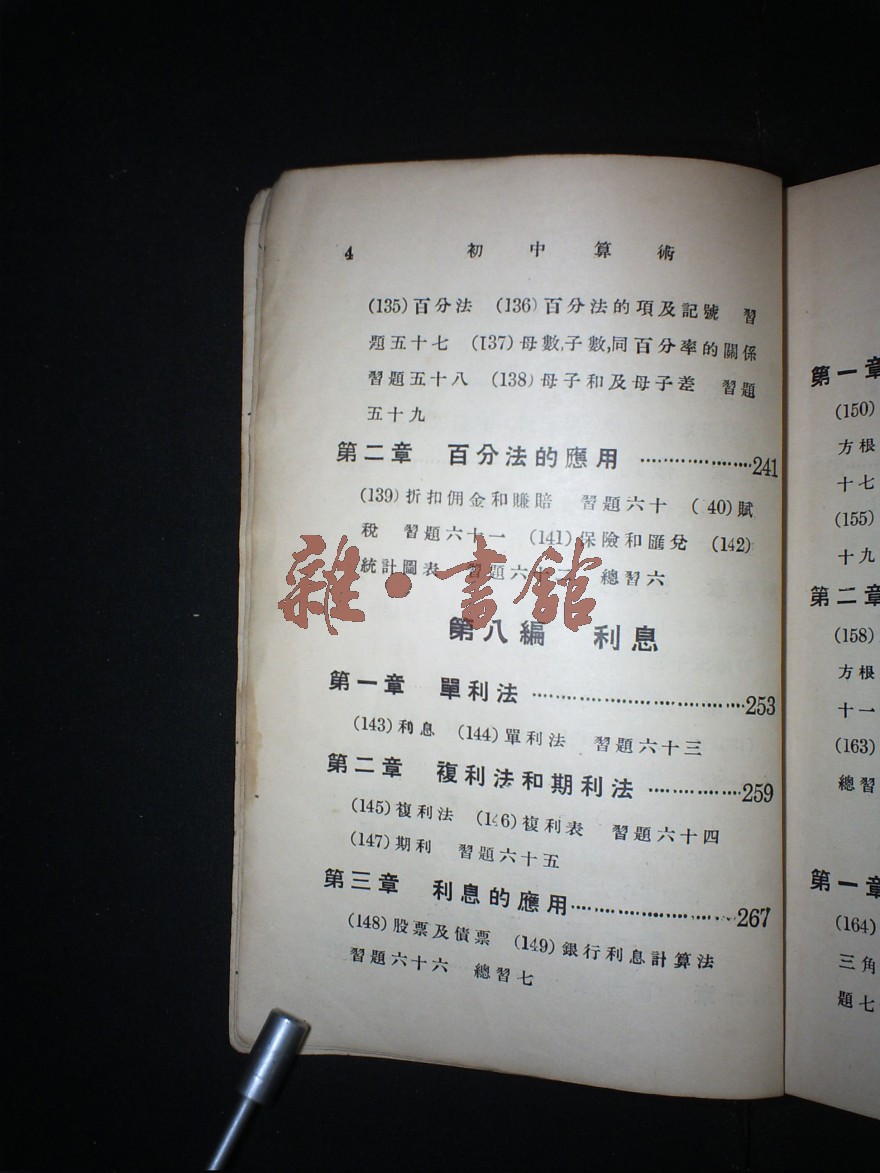 4 初中算術
(135)百分法 (136)百分法的項及記號 習
題五十七 (137)母數,子數,同百分率的關係
習題五十八 (138)母子和及母子差 習題
五十九
第二章 百分法的應用 ………………241
(139)折扣佣金和賺賠 習題六十 ( 40)賦
稅 習題六十一 (141)保險和匯兌 (142)
統計圖表 習題六十二 總習六
雜·書館
第八編 利息
第一章 單利法 ………………………………253
(143)利息 (144)單利法 習題六十三
第二章 複利法和期利法 ……………259
(145)複利法 (146)複利表 習題六十四
(147)期利 習題六十五
第三章 利息的應用………………………267
(148)股票及債票 (149)銀行利息計算法
習題六十六 總習七
第一章
(150)
方根
十七
(155)
十九
第二章
(158)
方根
十一
(163)
總習
第一章
(164)
三角
題七